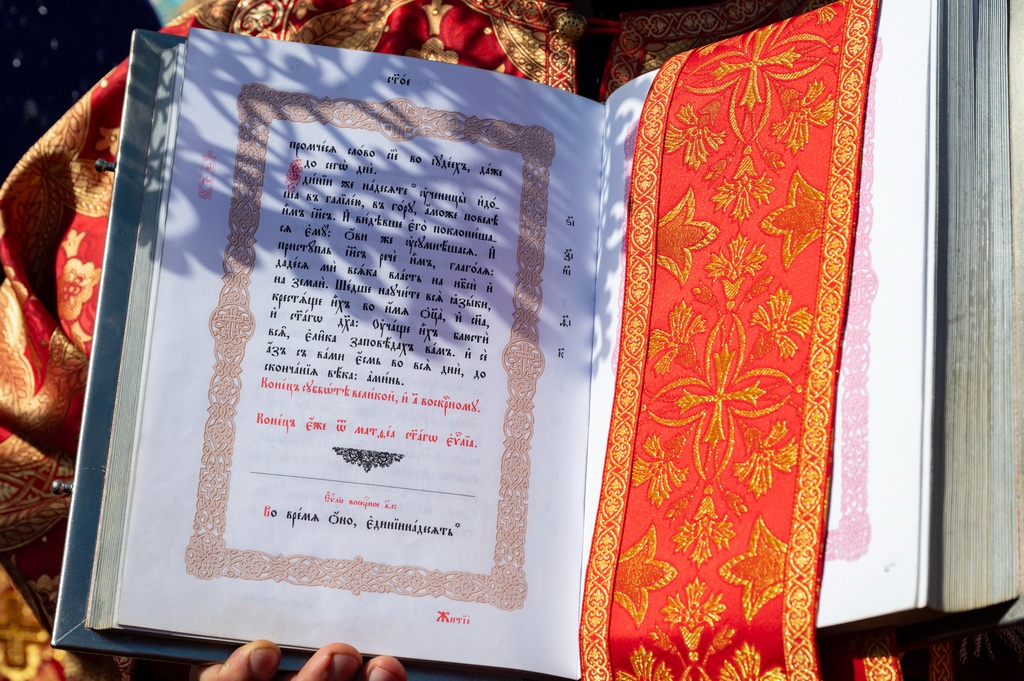 ст҃о́е
промче́сѧ сло́во сїѐ во і҆ꙋде́ехъ, да́же
до сегѡ̀ днѐ.
Є҆ди́нїи же на́десѧте ᲂу҆ченицы̀ и҆до́-
ша въ галїле́ю, въ го́рꙋ, а҆́може повелѣ̀
и҆̀мъ і҆и҃съ. И҆ ви́дѣвше є҆го̀ поклони́ша-
сѧ є҆мꙋ̀: Ѻ҆́ви же ᲂу҆сꙋмнѣ́шасѧ. И҆
пристꙋ́пль і҆и҃съ речѐ и҆̀мъ, глаго́лѧ:
даде́сѧ мѝ всѧ́ка вла́сть на нб҃сѝ и҆
на землѝ. Ше́дше наꙋчи́те всѧ̑ ꙗ҆зы́ки,
крестѧ́ще и҆̀хъ во и҆́мѧ ѻ҆ц҃а̀, и҆ сн҃а,
и҆ ст҃а́гѡ дх҃а: Оу҆ча́ще и҆̀хъ блюстѝ
всѧ̑, є҆ли̑ка заповѣ́дахъ ва́мъ. и҆ сѐ
а҆́зъ съ ва́ми є҆́смь во всѧ̑ дни̑, до
сконча́нїѧ вѣ́ка: а҆ми́нь.
Коне́цъ сꙋббѡ́тѣ вели́кой, и҆ а҃ воскр҇ному.
Коне́цъ є҆́же ѿ матѳе́а ст҃а́гѡ є҆ѵ҃лїа.
Є҆ѵ҃лїе воскр҇ное а҃є:
Во вре́мѧ ѻ҆́но, є҆ди́нїинадесѧть
Житїѐ